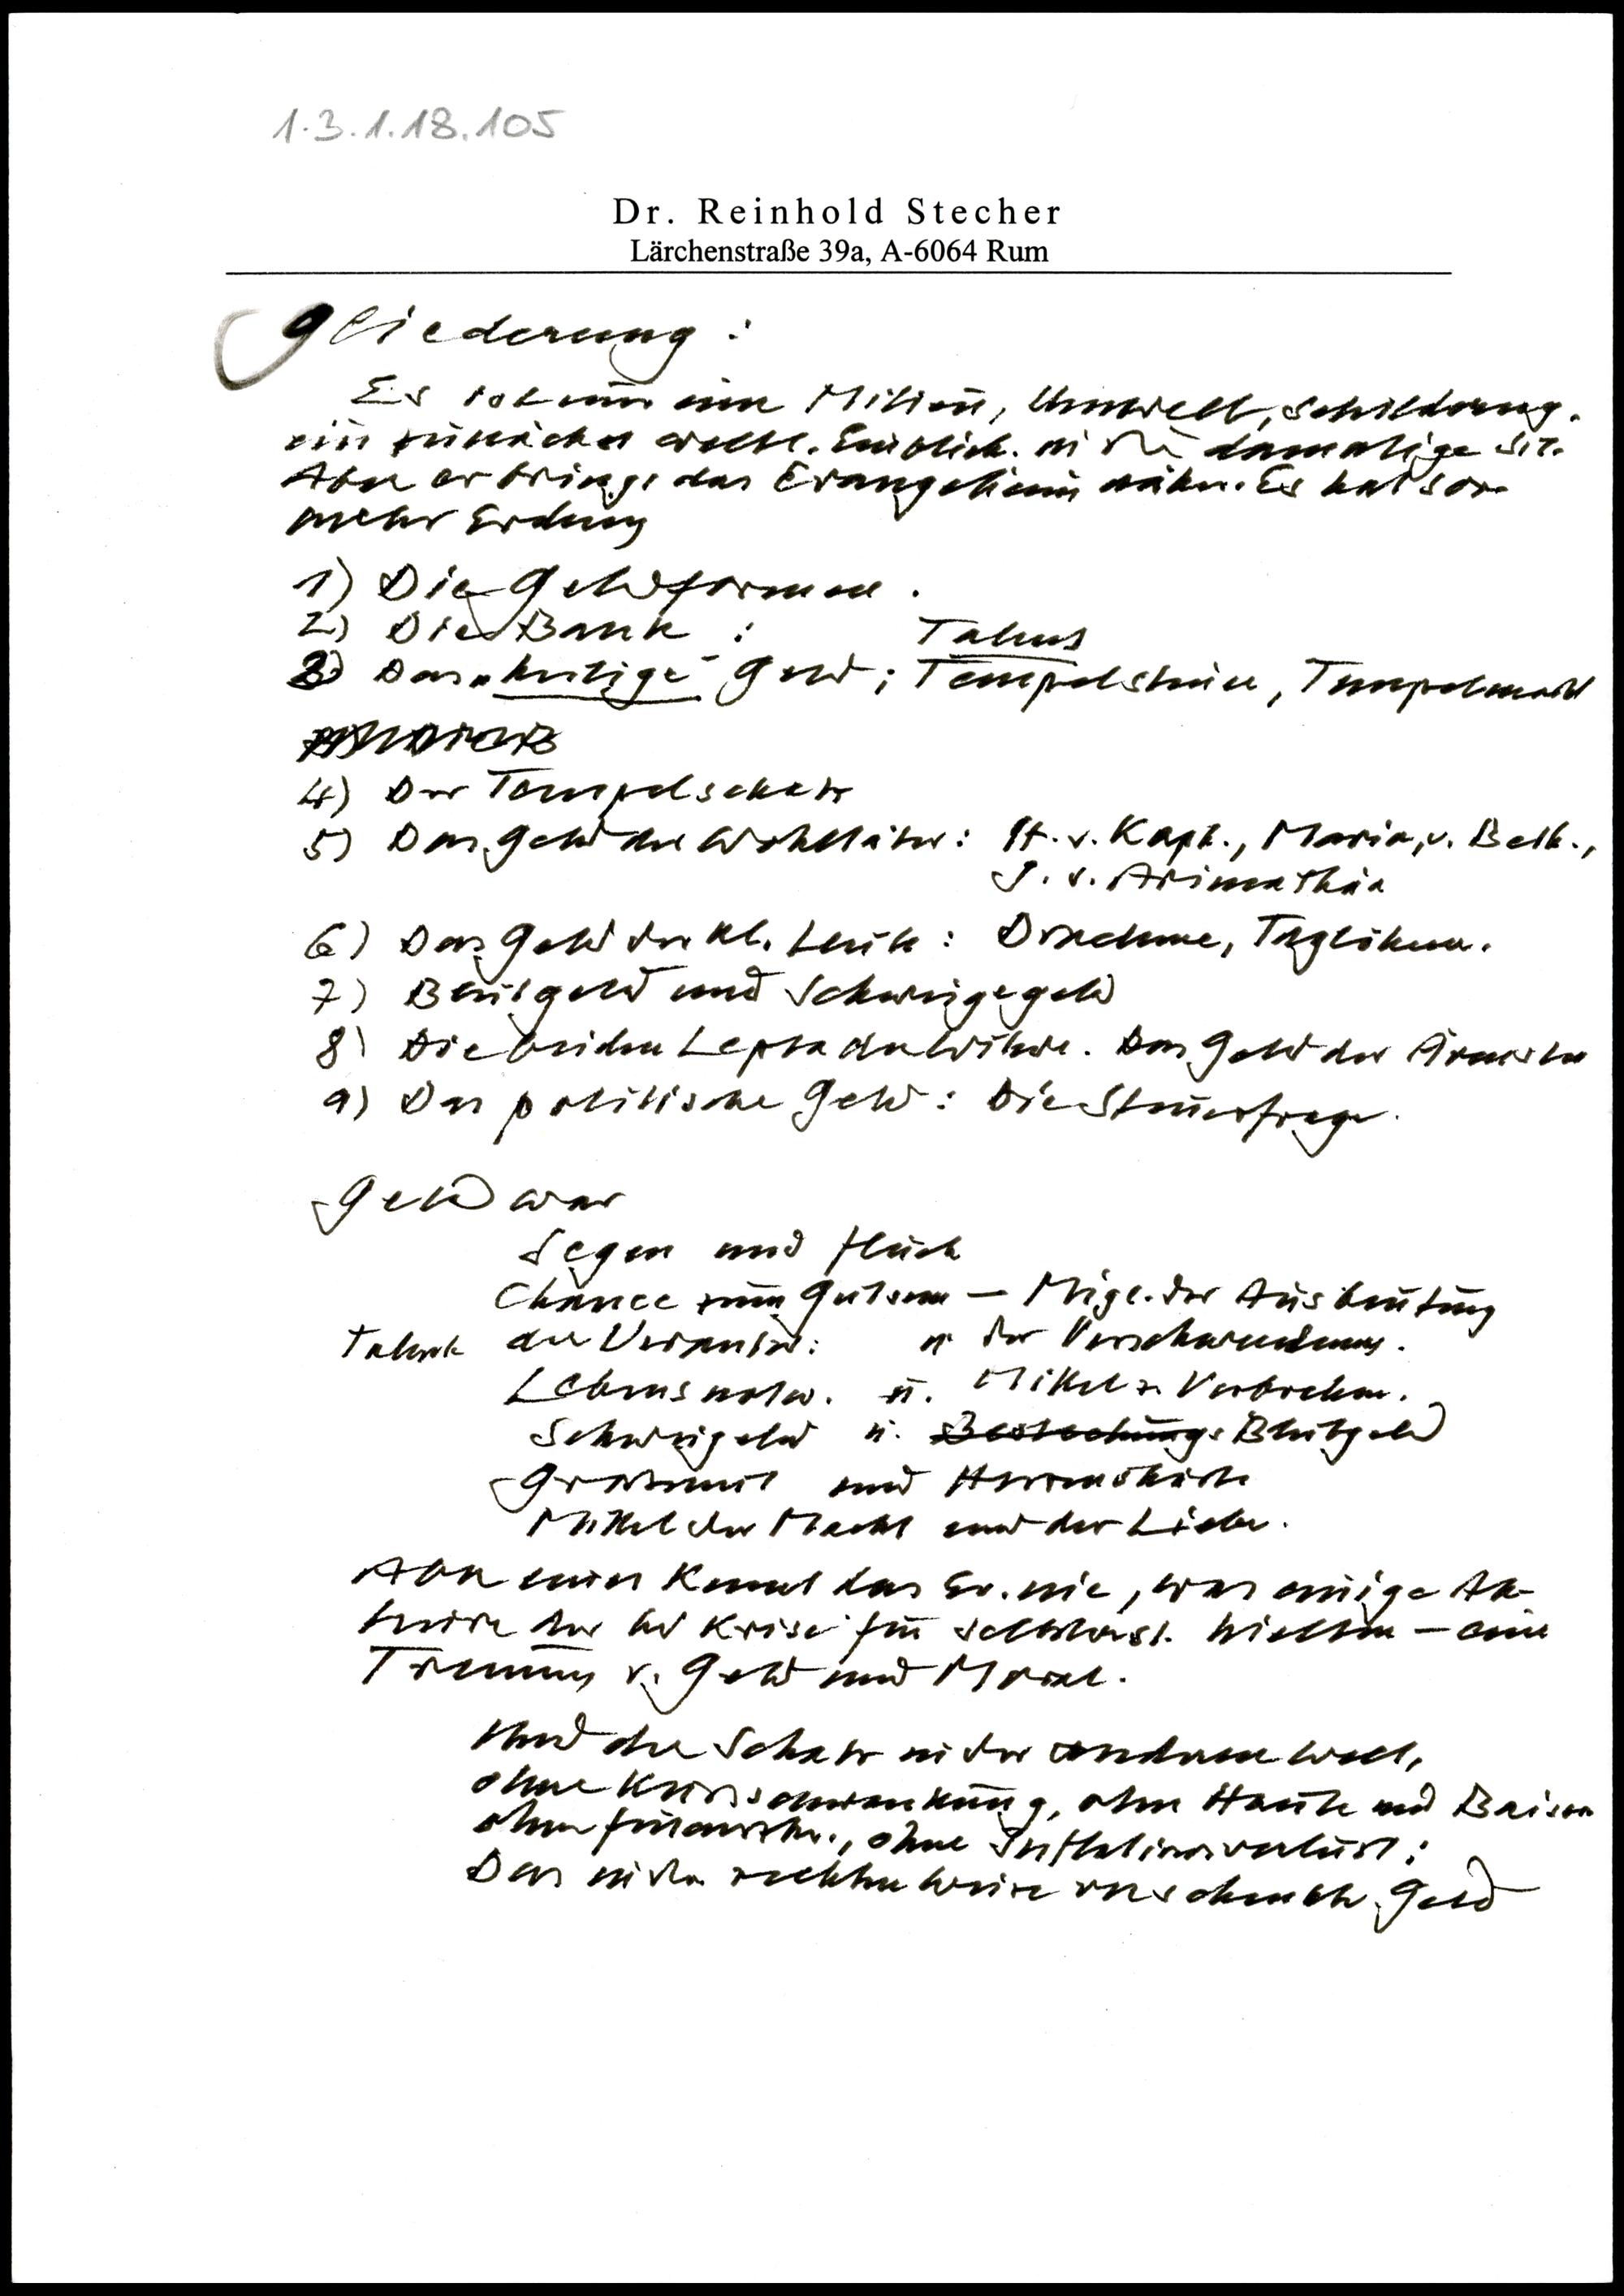 1.3.1.18.105
Dr. Reinhold Stecher
Lärchenstraße 39a, A-6064 Rum
Gliederung:
Es ist nur eine Milieu, Umwelt, Schilderung.
ein zunächst weltl. Einblick. in die damalige Sit.
Aber er bringt das Evangelium näher. Es hat
mehr Erdung
1) Die Geldformen.
2) Die Bank: Talent
3) Das "heilige" Geld; Tempelsteuer, Tempelmarkt
4) Der Tempelschatz
5) Das Geld der Wohltäter: H. v. Kaph., Maria, v. Beth.,
J. v. Arimathäa
6) Das Geld der kl. Leute: Drachme, Taglöhner.
7) Blutgeld und Schweigegeld
8) Die beiden Lepta der Witwe. Das Geld der Ärmsten
9) Das politische Geld: Die Steuerfrage.
Geld war
Segen und Fluch
Chance zum Gutsein – Mögl. der Ausbeutung
Talente der Verantw: u der Verschwendung.
Lebensnotw. u. Mittel z. Verbrechen.
Schweigeld u. Bestechungs Blutgeld
Grossmut und Herzenshärte
Mittel der Macht und der Liebe.
Aber eines kennt das Ev. nie, was einige Ak-
teure der Krise für selbstverst. hielten – eine
Trennung v. Geld und Moral.
Und der Schatz in der anderen Welt,
ohne Kursschwankung, ohne Hausse und Baisse
ohne Finanzkr., ohne Inflationsverlust:
Das in der rechten Weise verschenkte Geld